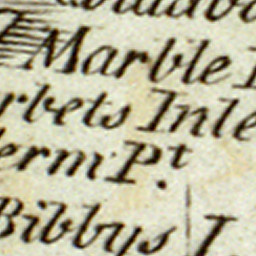 Marble
rbets Inle
erm Pt.
Bibbys I.